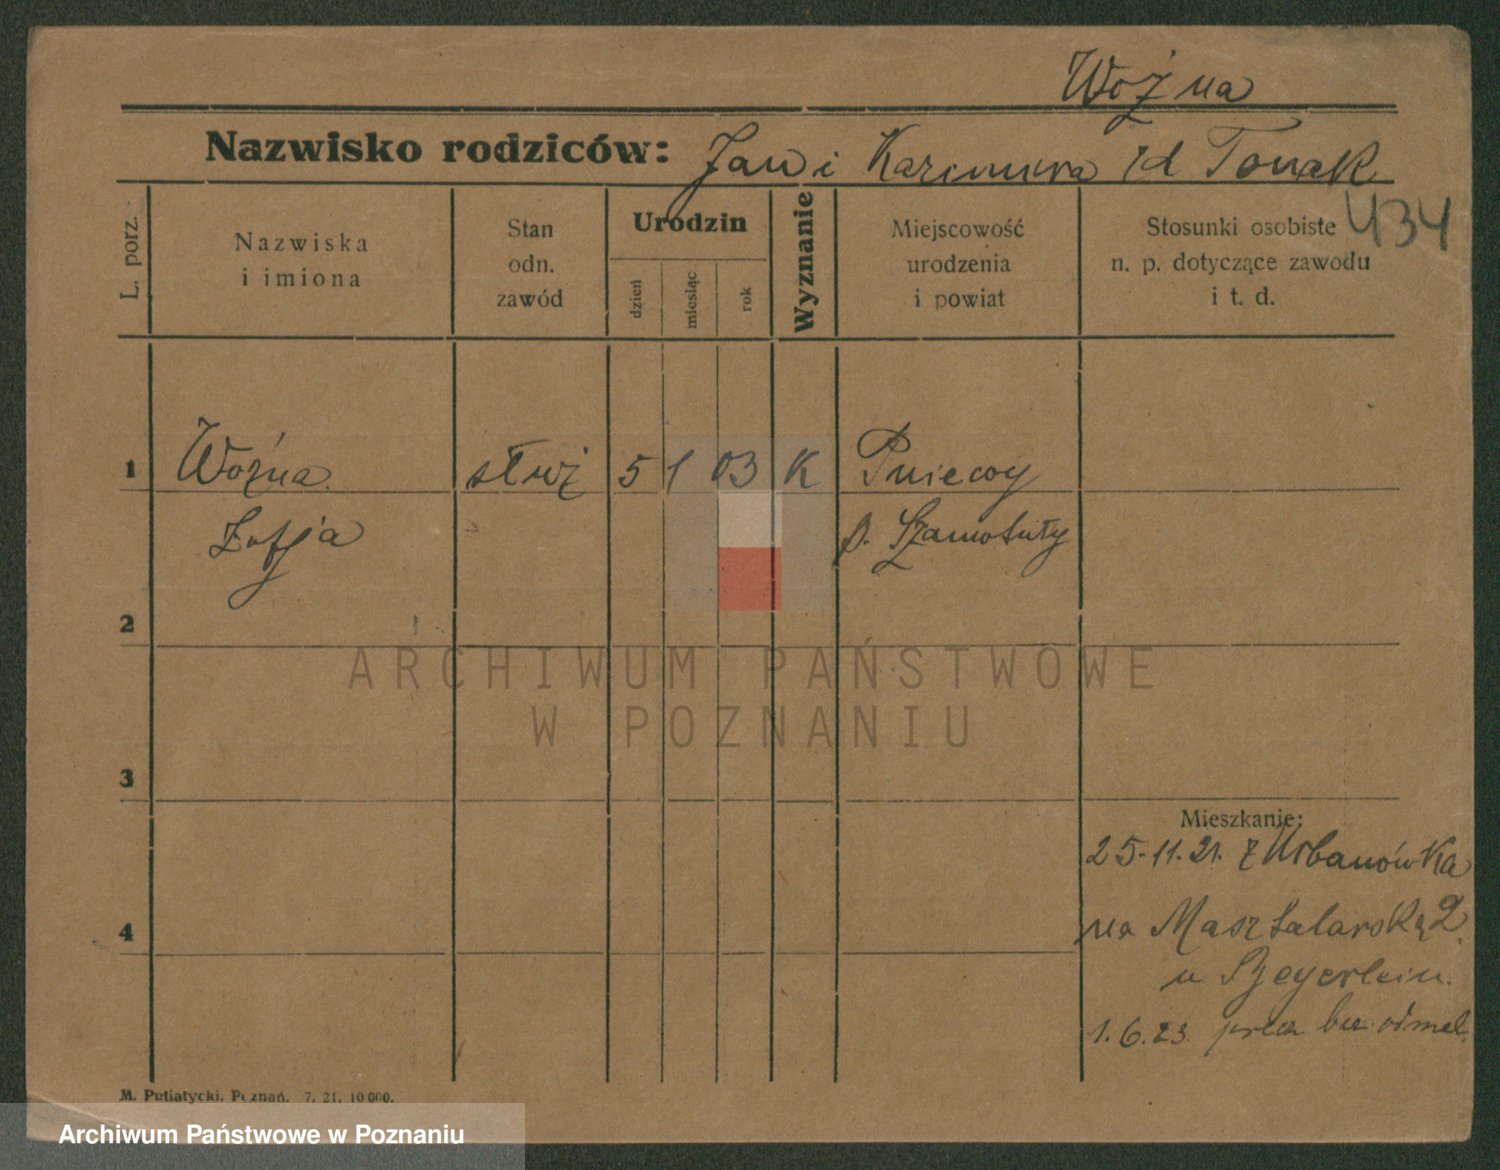 Woźna
Nazwisko rodziców: Jan i Kazimiera zd Tonak
434
L. porz.
Nazwiska
i imiona
Stan
odn.
zawód
Urodzin
dzień
miesiąc
rok
Wyznanie
Miejscowość
urodzenia
i powiat
Stosunki osobiste
n. p. dotyczące zawodu
i t. d.
1 Woźna służ 5 1 03 K Pniewy
Zofja p. Szamotuły
2
3
Mieszkanie:
25.11.21. z Urbanówka
4
na Masztalarską 2.
u Beyerlein.
1.6.23. precz bez odmel.
M. Putiatycki. Poznań. 7. 21. 10 000.
ARCHIWUM PAŃSTWOWE
W POZNANIU
Archiwum Państwowe w Poznaniu